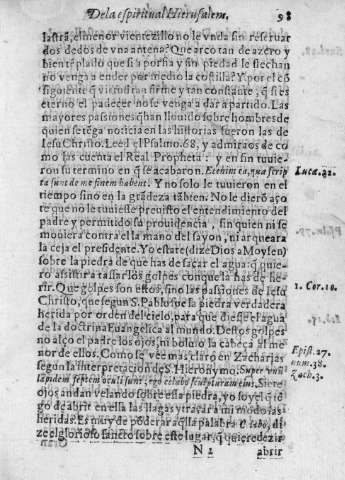 De la espiritual Hierusalem. 98
lastra, el menor vientezillo no le vnda sin reseruar
dos dedos de vna antena? Que arco tan de azero y
bien têplado que si a porfia y sin piedad le flechan
no venga a ender por medio la costilla? Y por el cõ
siguiente q̃ viento tã firme y tan constante, q̃ si es
eterno el padecer no se venga a dar a partido. Las
mayores passiones q̃ han llouido sobre hombres de
quien se tẽga noticia en las historias fueron las de
Iesu Christo. Leed el Psalmo. 68, y admiraos de co
mo las cuenta el Real Propheta: y en fin tuuie-
ron su termino en q̃ se acabaron. Etenim ea, quæ scrip
ta sunt de me finem habent. Y no solo le tuuieron en el
tiempo sino en la grãdeza tãbien. No le dierõ aço
te que no le tuuiesse preuisto el entendimiento del
padre y permitido su prouidencia, sin quien ni se
moniera contra el la mano del sayon, ni arqueara
la ceja el presidente. Yo estare (dize Dios a Moysen)
sobre la piedra de que has de sacar el agua: q̃ quie-
ro assistir a tassar los golpes con que la has de he-
rir. Que golpes son estos, sino las passiones de Iesu
Christo, que segun S. Pablo fue la piedra verdadera
herida por orden del cielo, para que diesse el agua
de la doctrina Euangelica al mundo. Destos golpes
no alço el padre los ojos, ni boluio la cabeça al me
nor de ellos. Como se vee mas claro en Zacharias
segun la interpretacion de S. Hieronymo. Super vnũ
lapidem septem oculi sunt, ego cælabo sculpturam eius. Siete
ojos andan velando sobre esta piedra, yo soy el q̃ tẽ
go de abrir en ella las llagas y traçar a mi modo las
heridas. Es muy de põderar aq̃lla palabra Cælabo, di
ze el glorioso sancto sobre este lugar, q̃ quiere dezir
N 2 abrir
Luca. 22.
1. Cor. 10.
Epist. 27.
num. 38.
Zach. 3.